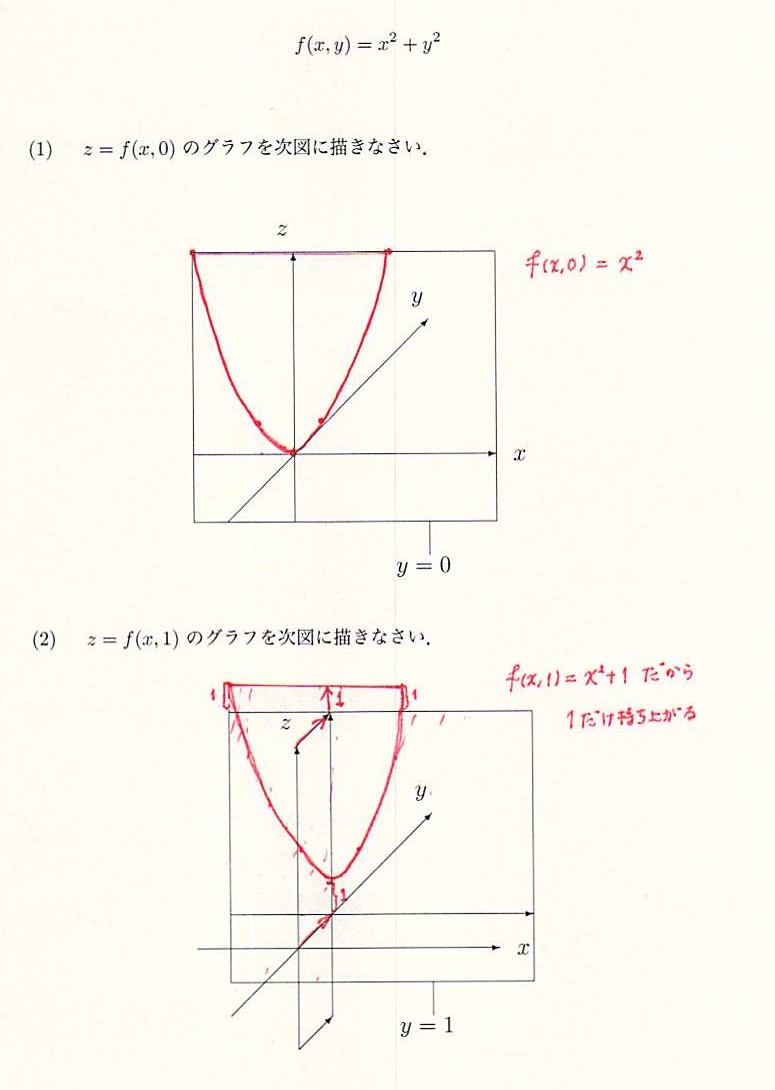 f(x, y) = x² + y²
(1) z = f(x, 0) のグラフを次図に描きなさい.
z
f(x,0) = x²
y
x
y = 0
(2) z = f(x, 1) のグラフを次図に描きなさい.
f(x,1) = x²+1 だから
1 1 1
1だけ持ち上がる
z
y
1
x
y = 1